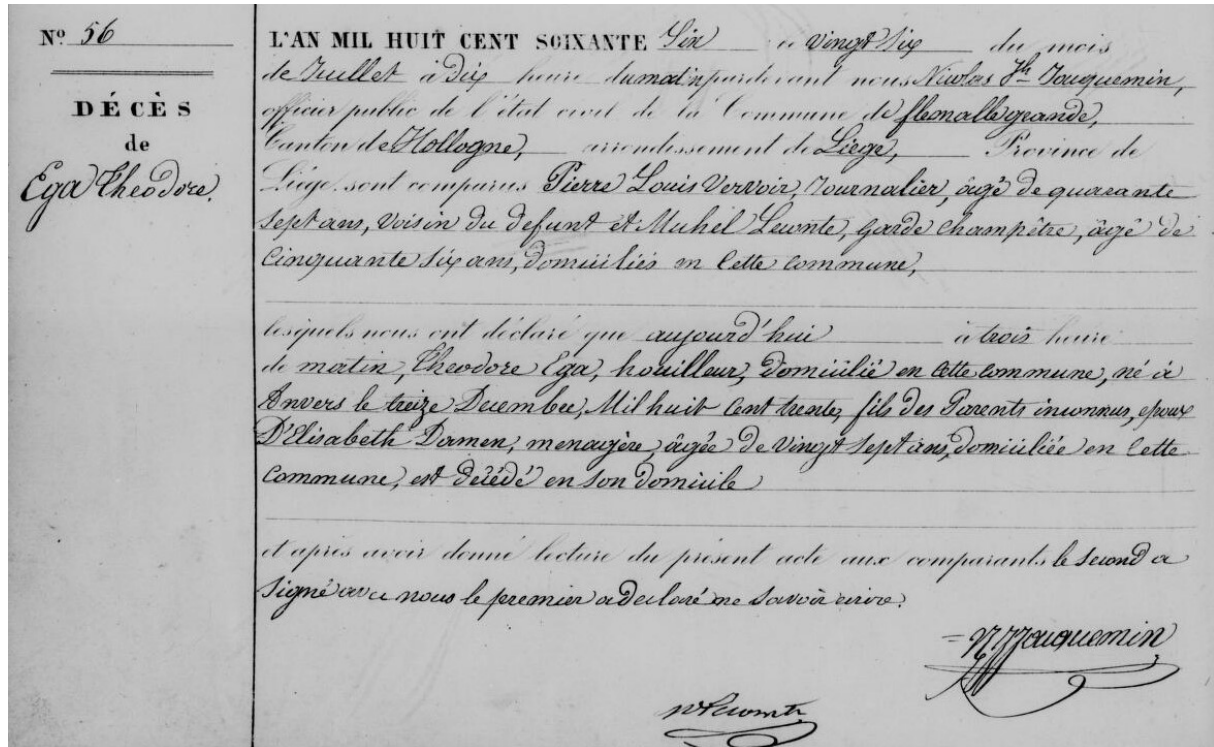 Nº 56
DÉCÈS
de
Ega Theodore.
L'AN MIL HUIT CENT SOIXANTE Six le vingt six du mois
de Juillet à dix heure du matin pardevant nous Nicolas Jh Jouquemin,
officier public de l'état civil de la Commune de flemalle grande,
Canton de Hollogne, arrondissement de Liège, Province de
Liége sont comparus Pierre Louis Vervoir, Journalier, âgé de quarante
sept ans, Voisin du defunt et Michel Leconte, garde champêtre, âgé de
Cinquante six ans, domiciliés en cette commune,
lesquels nous ont déclaré que aujourd'hui à trois heure
de matin, Theodore Ega, houilleur, domicilié en cette commune, né à
Anvers le treize Decembre, Mil huit Cent trente, fils des Parents inconnus, epoux
D'Elisabeth Damen, menagère, âgée de Vingt sept ans, domiciliée en cette
Commune, est décédé en son domicile
et après avoir donné lecture du présent acte aux comparants le second a
Signé avec nous le premier a declaré ne Savoir ecrire.
Jouquemin
Lecomte